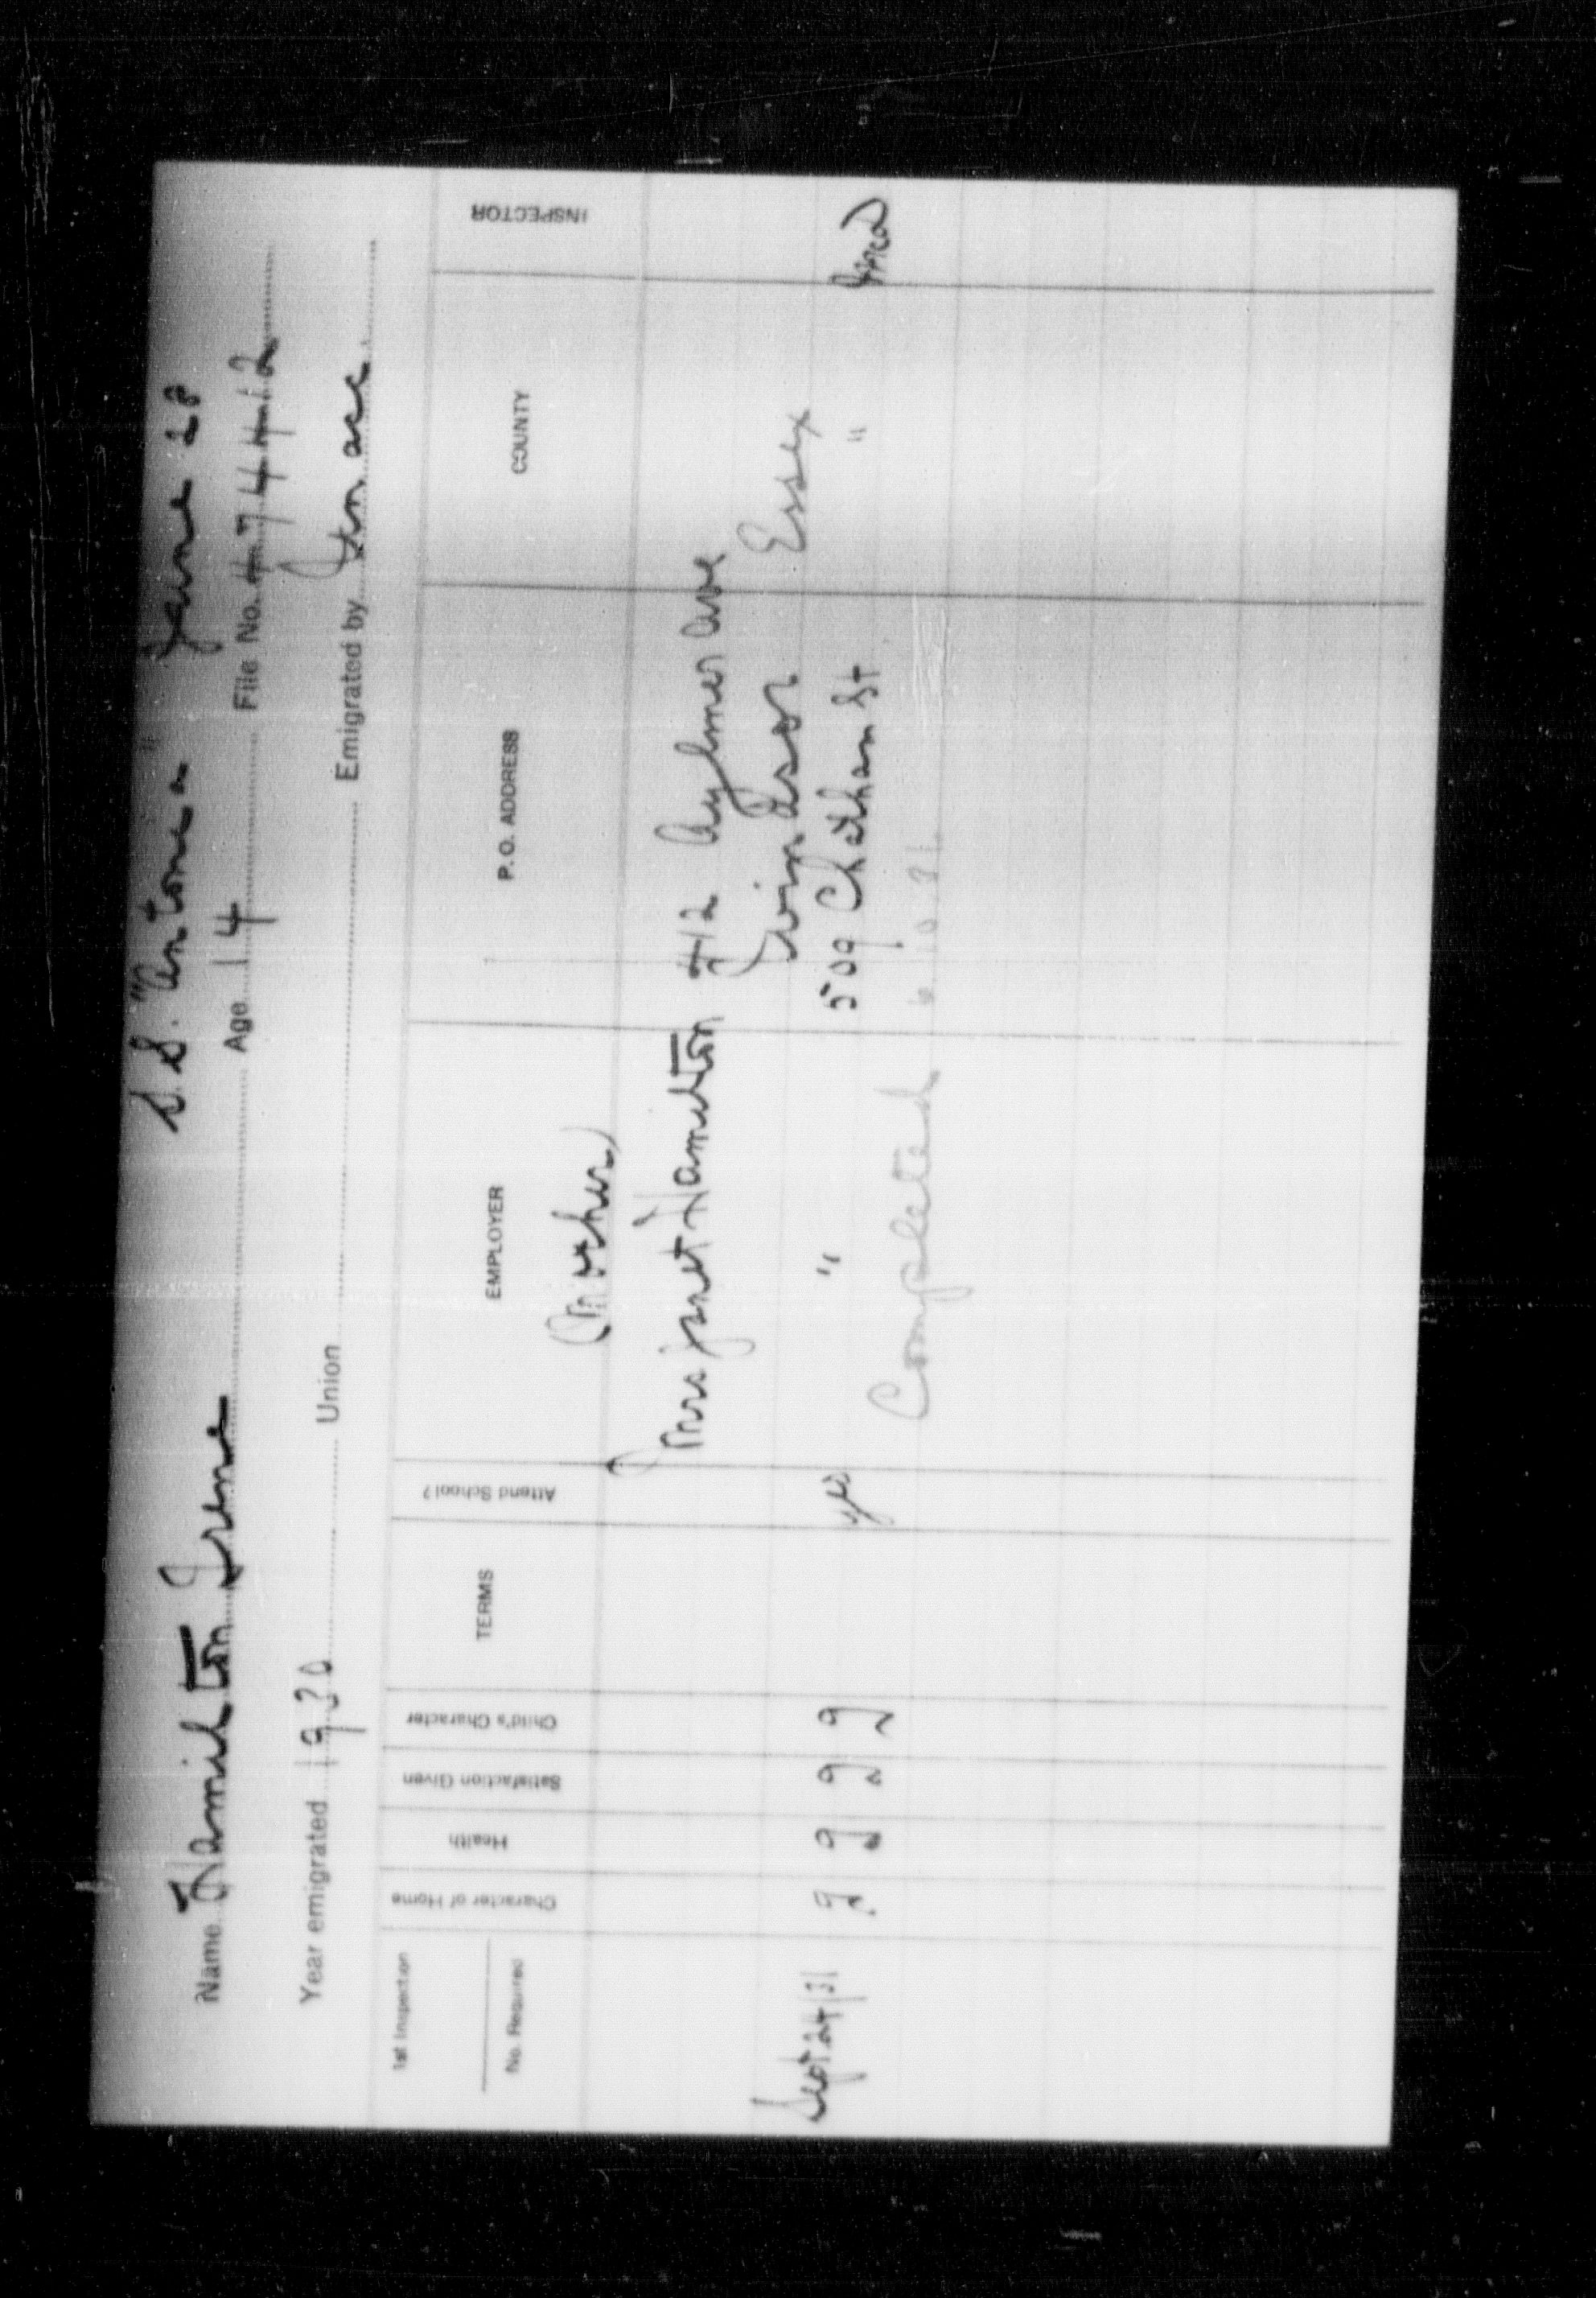 S.S. "Antonia" June 28
Name Hamilton Irene Age 14 File No. 474412
Year emigrated 1930 Union Emigrated by Unacc
1st Inspection
No. Required
Character of Home
Health
Satisfaction Given
Child's Character
TERMS
Attend School?
EMPLOYER
P. O. ADDRESS
COUNTY
INSPECTOR
(Mother)
Mrs Janet Hamilton 412 Aylmer Ave
Windsor Essex
Sept 24/31 g g g g yes " 509 Chatham St "
Completed